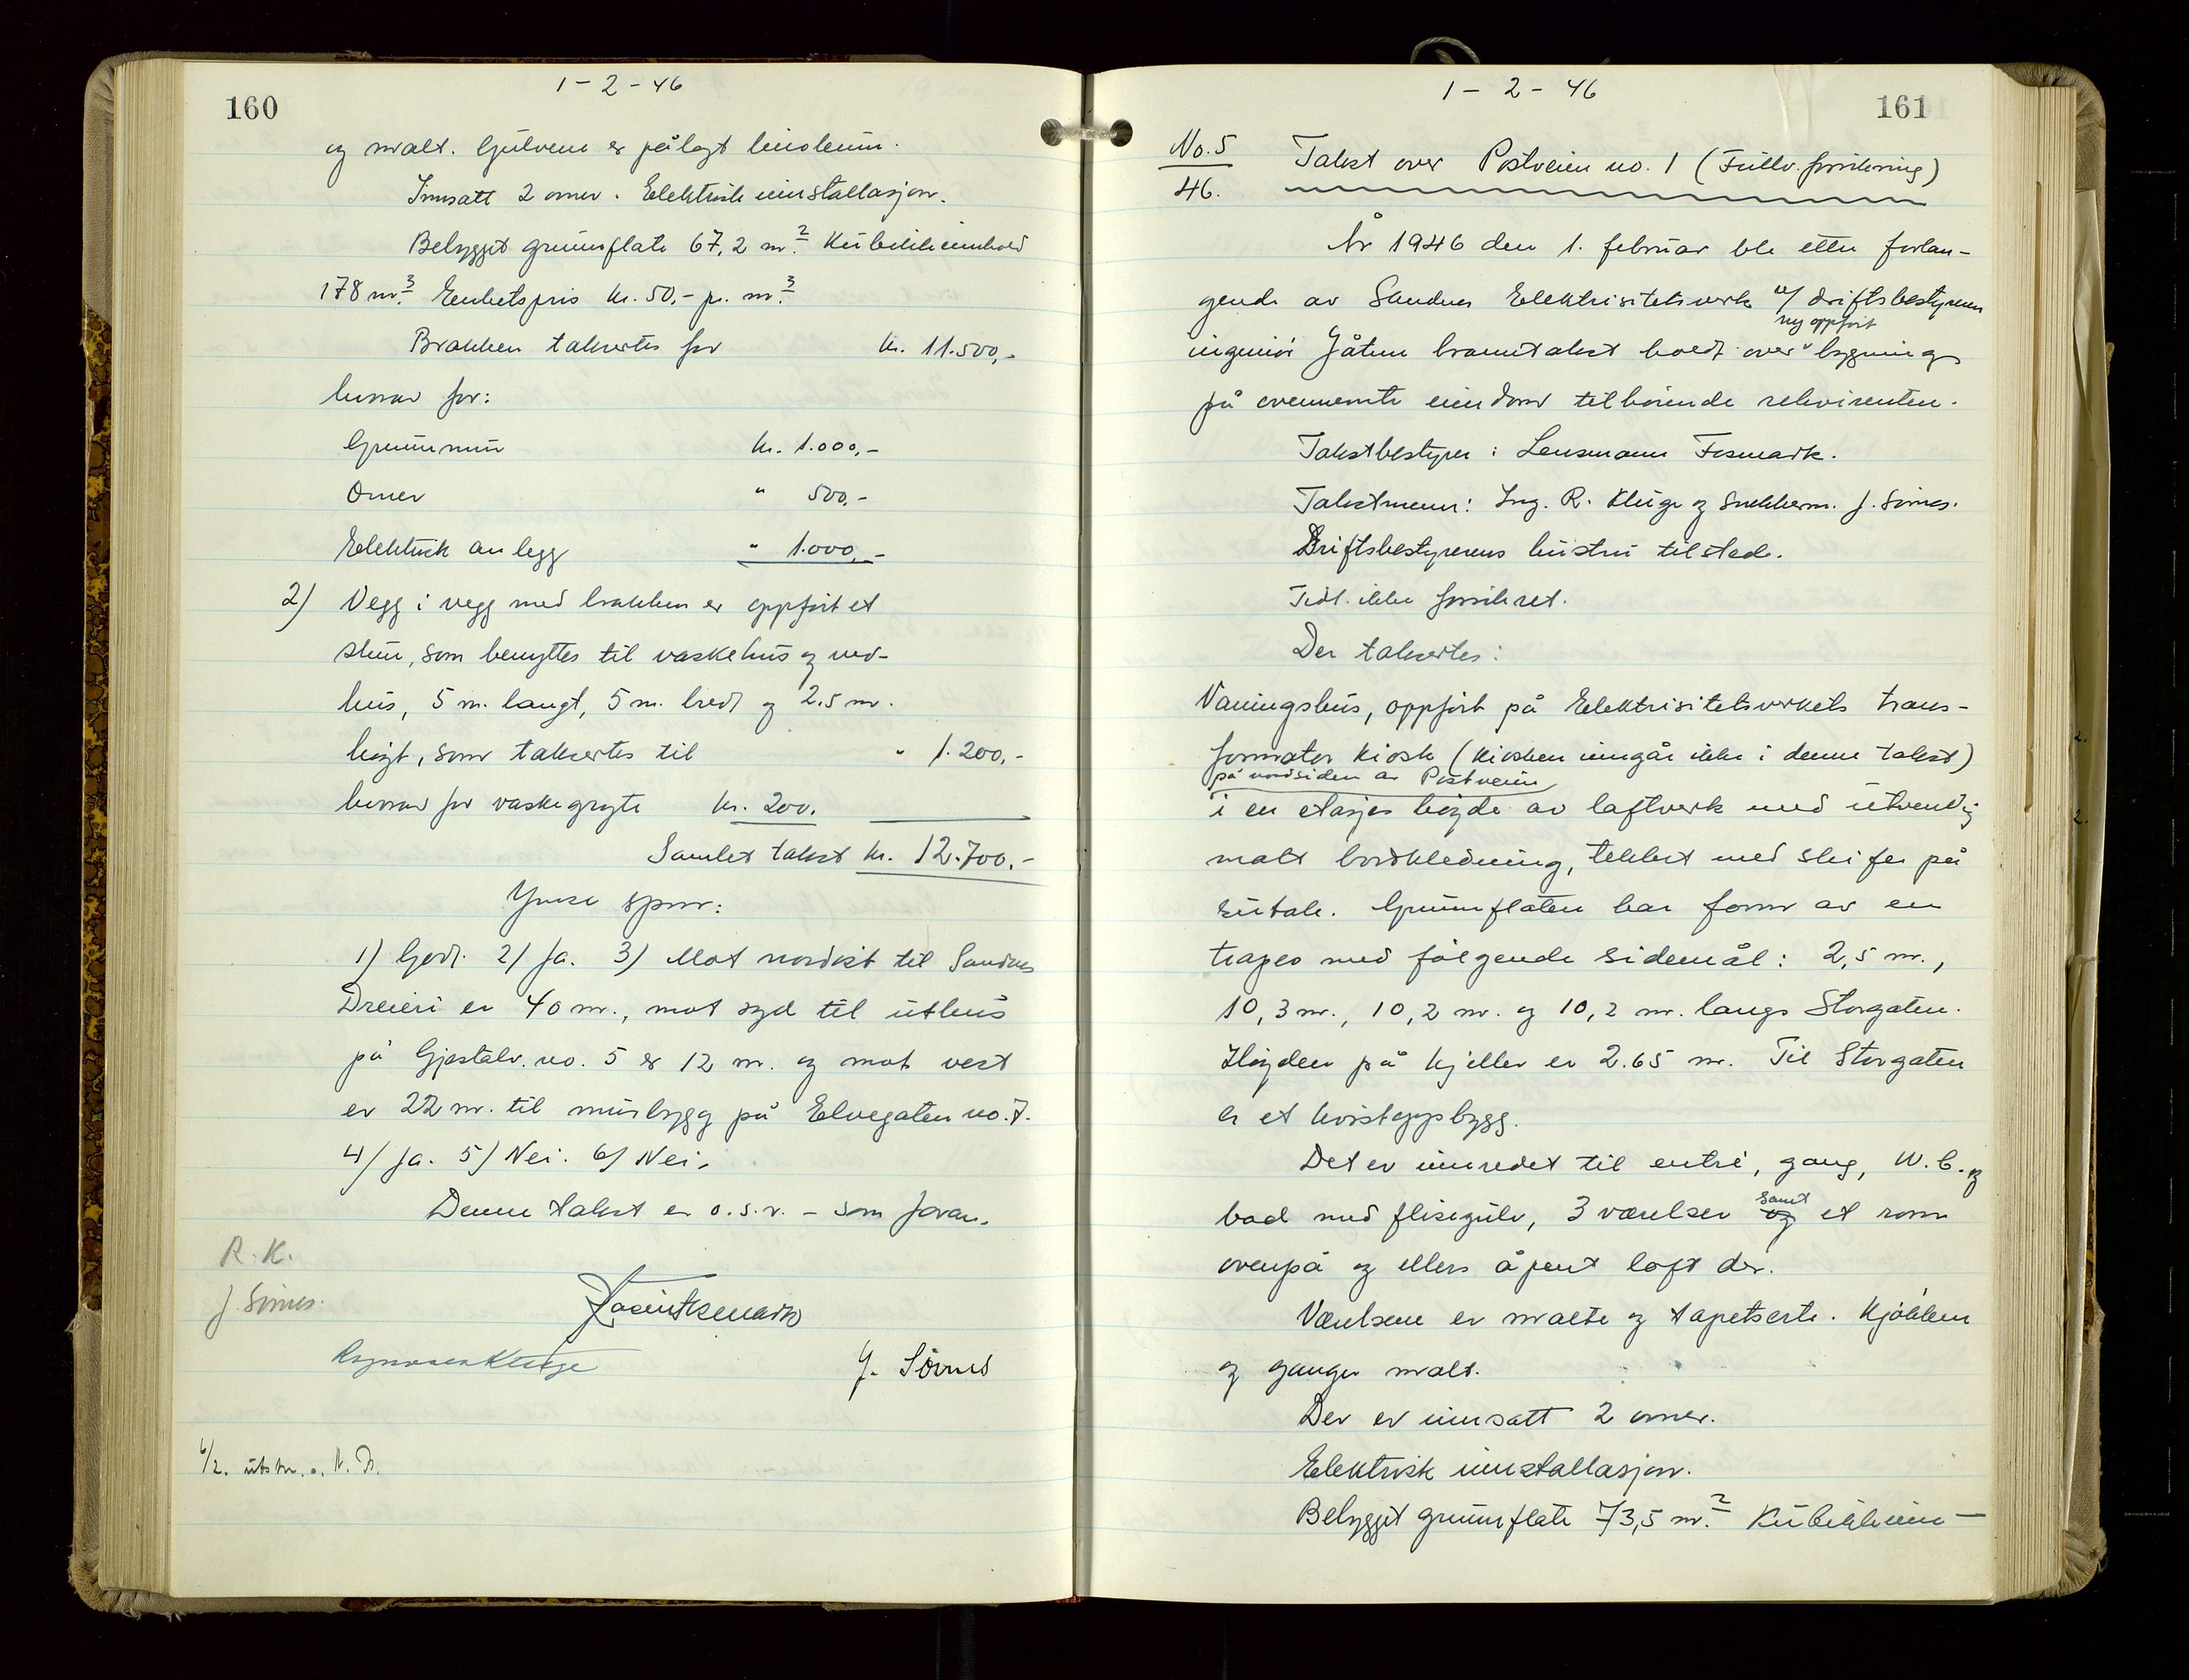 160
1-2-46
og malt. Gulvene er pålagt linoleum.
Innsatt 2 omner. Elektrisk innstallasjon.
Bebygget grunnflate 67,2 m². Kubikkinnhold
178 m³. Enhetspris kr. 50,- pr. m³
Brakken takseres for kr. 11.500,-
herav for:
Grunnmur kr. 1.000,-
Omner " 500,-
Elektrisk anlegg " 1.000,-
2) Vegg i vegg med brakken er oppført et
skur, som benyttes til vaskehus og ved-
hus, 5 m. langt, 5 m. bredt og 2.5 m.
høgt, som takseres til " 1.200,-
herav for vaskegryte kr. 200.
Samlet takst kr. 12.700,-
Ymse spm:
1) Godt. 2) Ja. 3) Mot nordost til Sandnes
Dreieri er 40 m., mot syd til uthus
på Gjestalv. no. 5 er 12 m. og mot vest
er 22 m. til murbygg på Elvegaten no. 7.
4) Ja. 5) Nei. 6) Nei.
Denne takst er o.s.v. - som foran.
R. K.
J. Sörnes.
Ragnvald Kluge J. Sörnes
6/2. utskr.
161
1-2-46
No. 5
46. Takst over Postveien no. 1 (Fullv. forsikring)
År 1946 den 1. februar ble etter forlan-
gende av Sandnes Elektrisitetsverk v/ driftsbestyreren
ny oppfört
ingeniör Jåtun branntakst holdt over bygning
på ovennemte eiendom tilhörende rekvirenten.
Takstbestyrer: Lensmann Fosmark.
Takstmenn: Ing. R. Kluge og snekkerm. J. Sörnes.
Driftsbestyrerens hustru tilstede.
Tidl. ikke forsikret.
Der takseres:
Våningshus, oppfört på Elektrisitetsverkets trans-
formator kiosk (kiosken inngår ikke i denne takst)
på nordsiden av Postveien
i en etasjes höyde av laftverk med utvendig
malt bordkledning, tekket med skifer på
sutak. Grunnflaten har form av en
trapes med fölgende sidemål: 2,5 m.,
10,3 m., 10,2 m. og 10,2 m. langs Storgaten.
Höyden på kjeller er 2.65 m. Til Storgaten
er et kvistoppbygg.
Det er innredet til entré, gang, W.C. og
bad med flisegulv, 3 værelser samt et rom
ovenpå og ellers åpent loft der.
Værelsene er malte og tapetserte. Kjökken
og ganger malt.
Der er innsatt 2 omner.
Elektrisk innstallasjon.
Bebygget grunnflate 73,5 m². Kubikkinn-